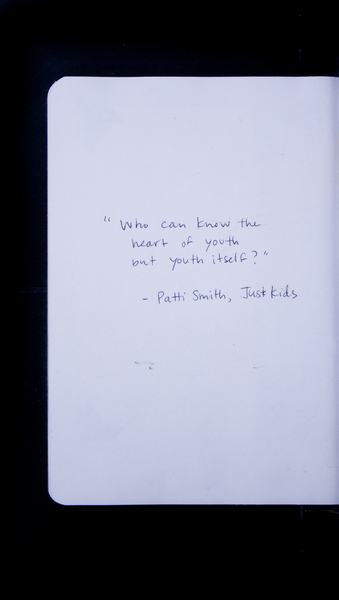 "Who can know the
heart of youth
but youth itself?"
- Patti Smith, Just Kids